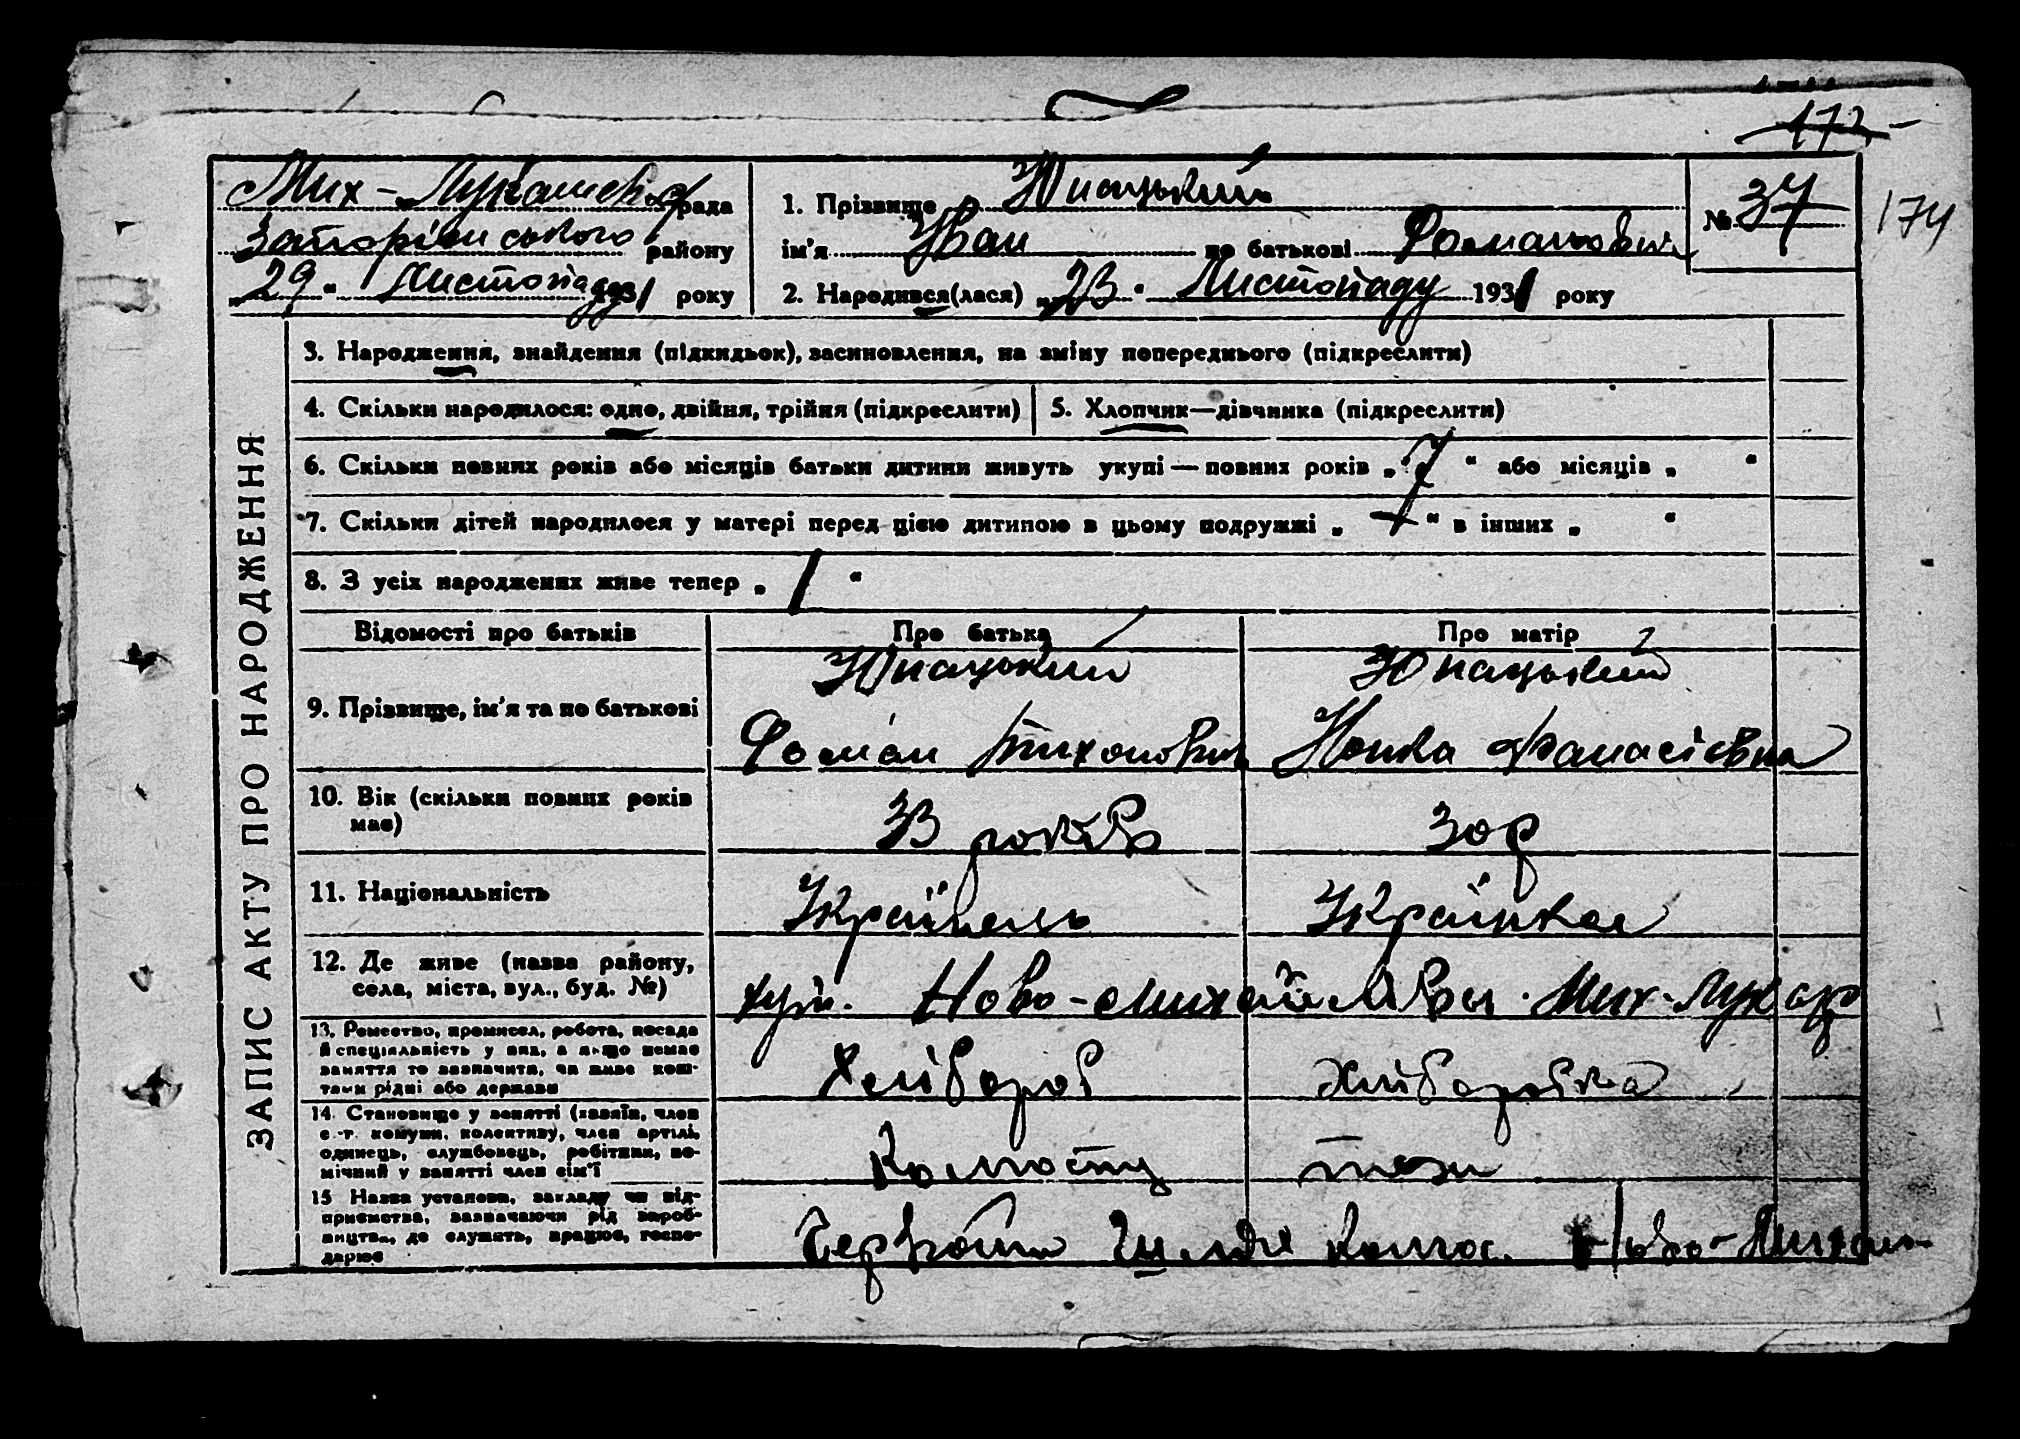 172
174
Мих-Лукашівськ рада
Запорізького району
„29“ Листопаду 1931 року
1. Прізвище Юнацький
ім'я Іван по батькові Романович
№ 37
2. Народився(лася) „23“ Листопаду 1931 року
ЗАПИС АКТУ ПРО НАРОДЖЕННЯ
3. Народження, знайдення (підкидьок), засиновлення, на зміну попереднього (підкреслити)
4. Скільки народилося: одно, двійня, трійня (підкреслити)
5. Хлопчик—дівчинка (підкреслити)
6. Скільки повних років або місяців батьки дитини живуть укупі — повних років „7“ або місяців „ “
7. Скільки дітей народилося у матері перед цією дитиною в цьому подружжі „ “ в інших „ “
8. З усіх народжених живе тепер „1“
Відомості про батьків
Про батька
Про матір
9. Прізвище, ім'я та по батькові
Юнацький
Роман Тихонович
Юнацький
Афанасієвна
10. Вік (скільки повних років має)
33 років
30 р
11. Національність
Українець
Українка
12. Де живе (назва району, села, міста, вул., буд. №)
хут. Ново-Михайлівка Мих-Лук
13. Ремество, промисел, робота, посада й спеціяльність у них, а якщо немає заняття то зазначити, чи живе коштами рідні або держави
Хлібороб
Хліборобка
14. Становище у занятті (хазяїн, член с.-г. комуни, колективу, член артілі, одинець, службовець, робітник, помічний у занятті член сім'ї
15 Назва установи, закладу чи підприємства, зазначаючи рід виробництва, де служить, працює, господарює
Ново-Михай